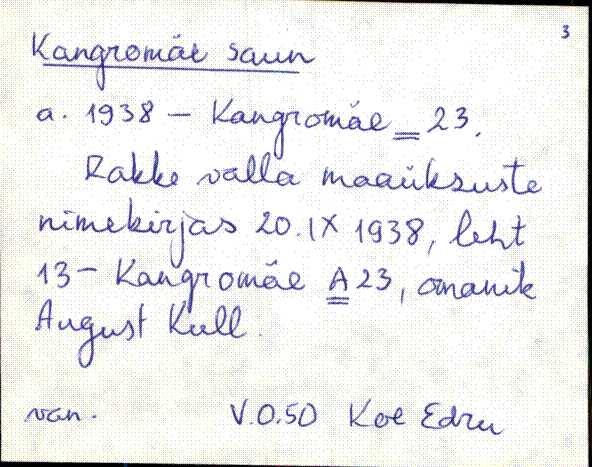 3
Kangromäe saun
a. 1938 - Kangromäe = 23.
Rakke valla maaüksuste
nimekirjas 20.IX 1938, leht
13 - Kangromäe A 23, omanik
August Kull.
van. V.O.50 Koe Edru